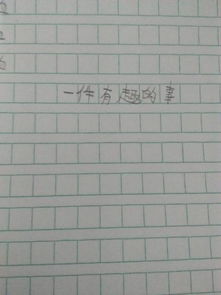 一件有趣的事